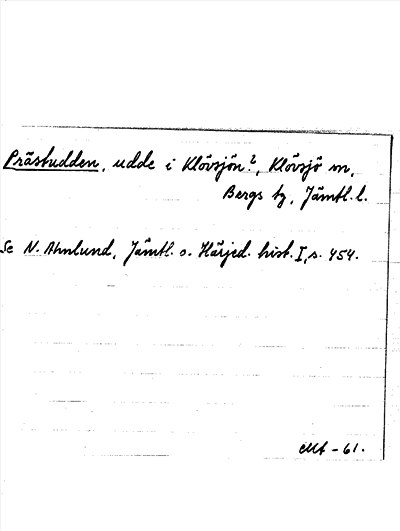 Prästudden, udde i Klövsjön?, Klövsjö sn,
Bergs tg, Jämtl. l.
Se N. Ahnlund, Jämtl. o. Härjed. hist. I, s. 454.
-61.